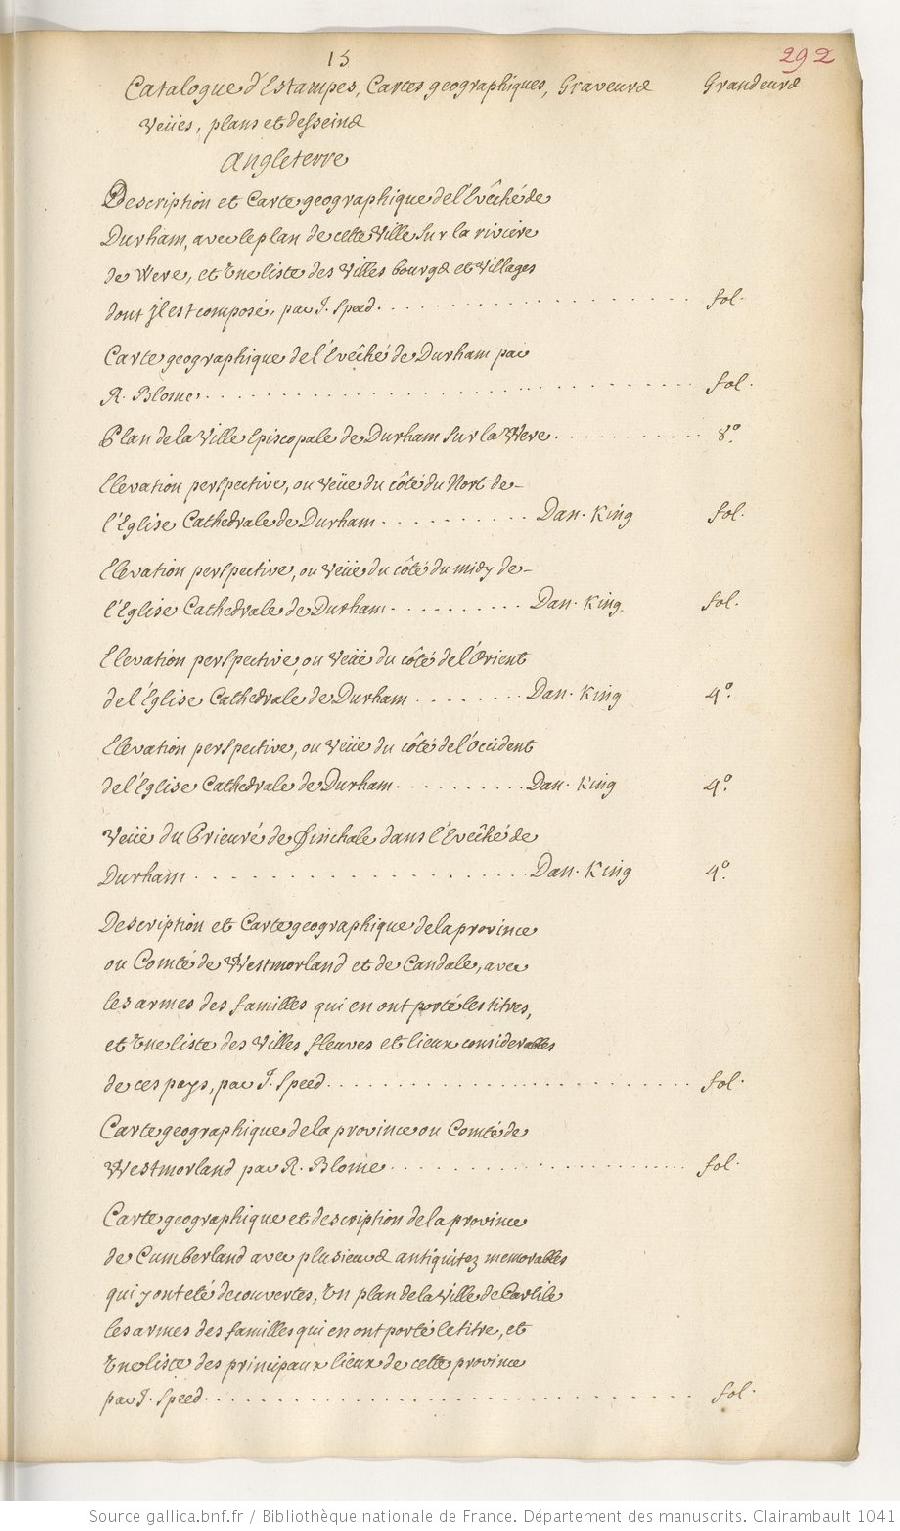 15
292
Catalogue d'Estampes, Cartes geographiques, Graveures Grandeurs
Veües, plans et desseins
Angleterre
Description et Carte geographique de l'Evêché de
Durham, avec le plan de cette Ville sur la riviere
de Were, et Une liste des Villes bourgs et Villages
dont Jl est composé, par J. Speed. fol.
Carte geographique de l'Evêché de Durham par
R. Blome. fol.
Plan de la Ville Episcopale de Durham sur la Were. 8.º
Elevation perspective, ou veüe du côté du Nort de
l'Eglise Cathedrale de Durham. Dan. King fol.
Elevation perspective, ou veüe du côté du midy de
l'Eglise Cathedrale de Durham. Dan. King. fol.
Elevation perspective, ou veüe du côté de l'Orient
de l'Eglise Cathedrale de Durham Dan. King 4.º
Elevation perspective, ou veüe du côté de l'occident
de l'Eglise Cathedrale de Durham. Dan. King 4.º
Veüe du Prieuré de Finchale dans l'Evêché de
Durham. Dan. King 4.º
Description et Carte geographique de la province
ou Comté de Westmorland et de Candale, avec
les armes des familles qui en ont porté les titres,
et Une liste des Villes fleuves et lieux considerables
de ces pays, par J. Speed. fol.
Carte geographique de la province ou Comté de
Westmorland par R. Blome. fol.
Carte geographique et description de la province
de Cumberland avec plusieurs antiquitez memorables
qui y ont eté decouvertes, Un plan de la Ville de Carlile
les armes des familles qui en ont porté le titre, et
Une liste des principaux lieux de cette province
par J. Speed. fol.
Source gallica.bnf.fr / Bibliothèque nationale de France. Département des manuscrits. Clairambault 1041